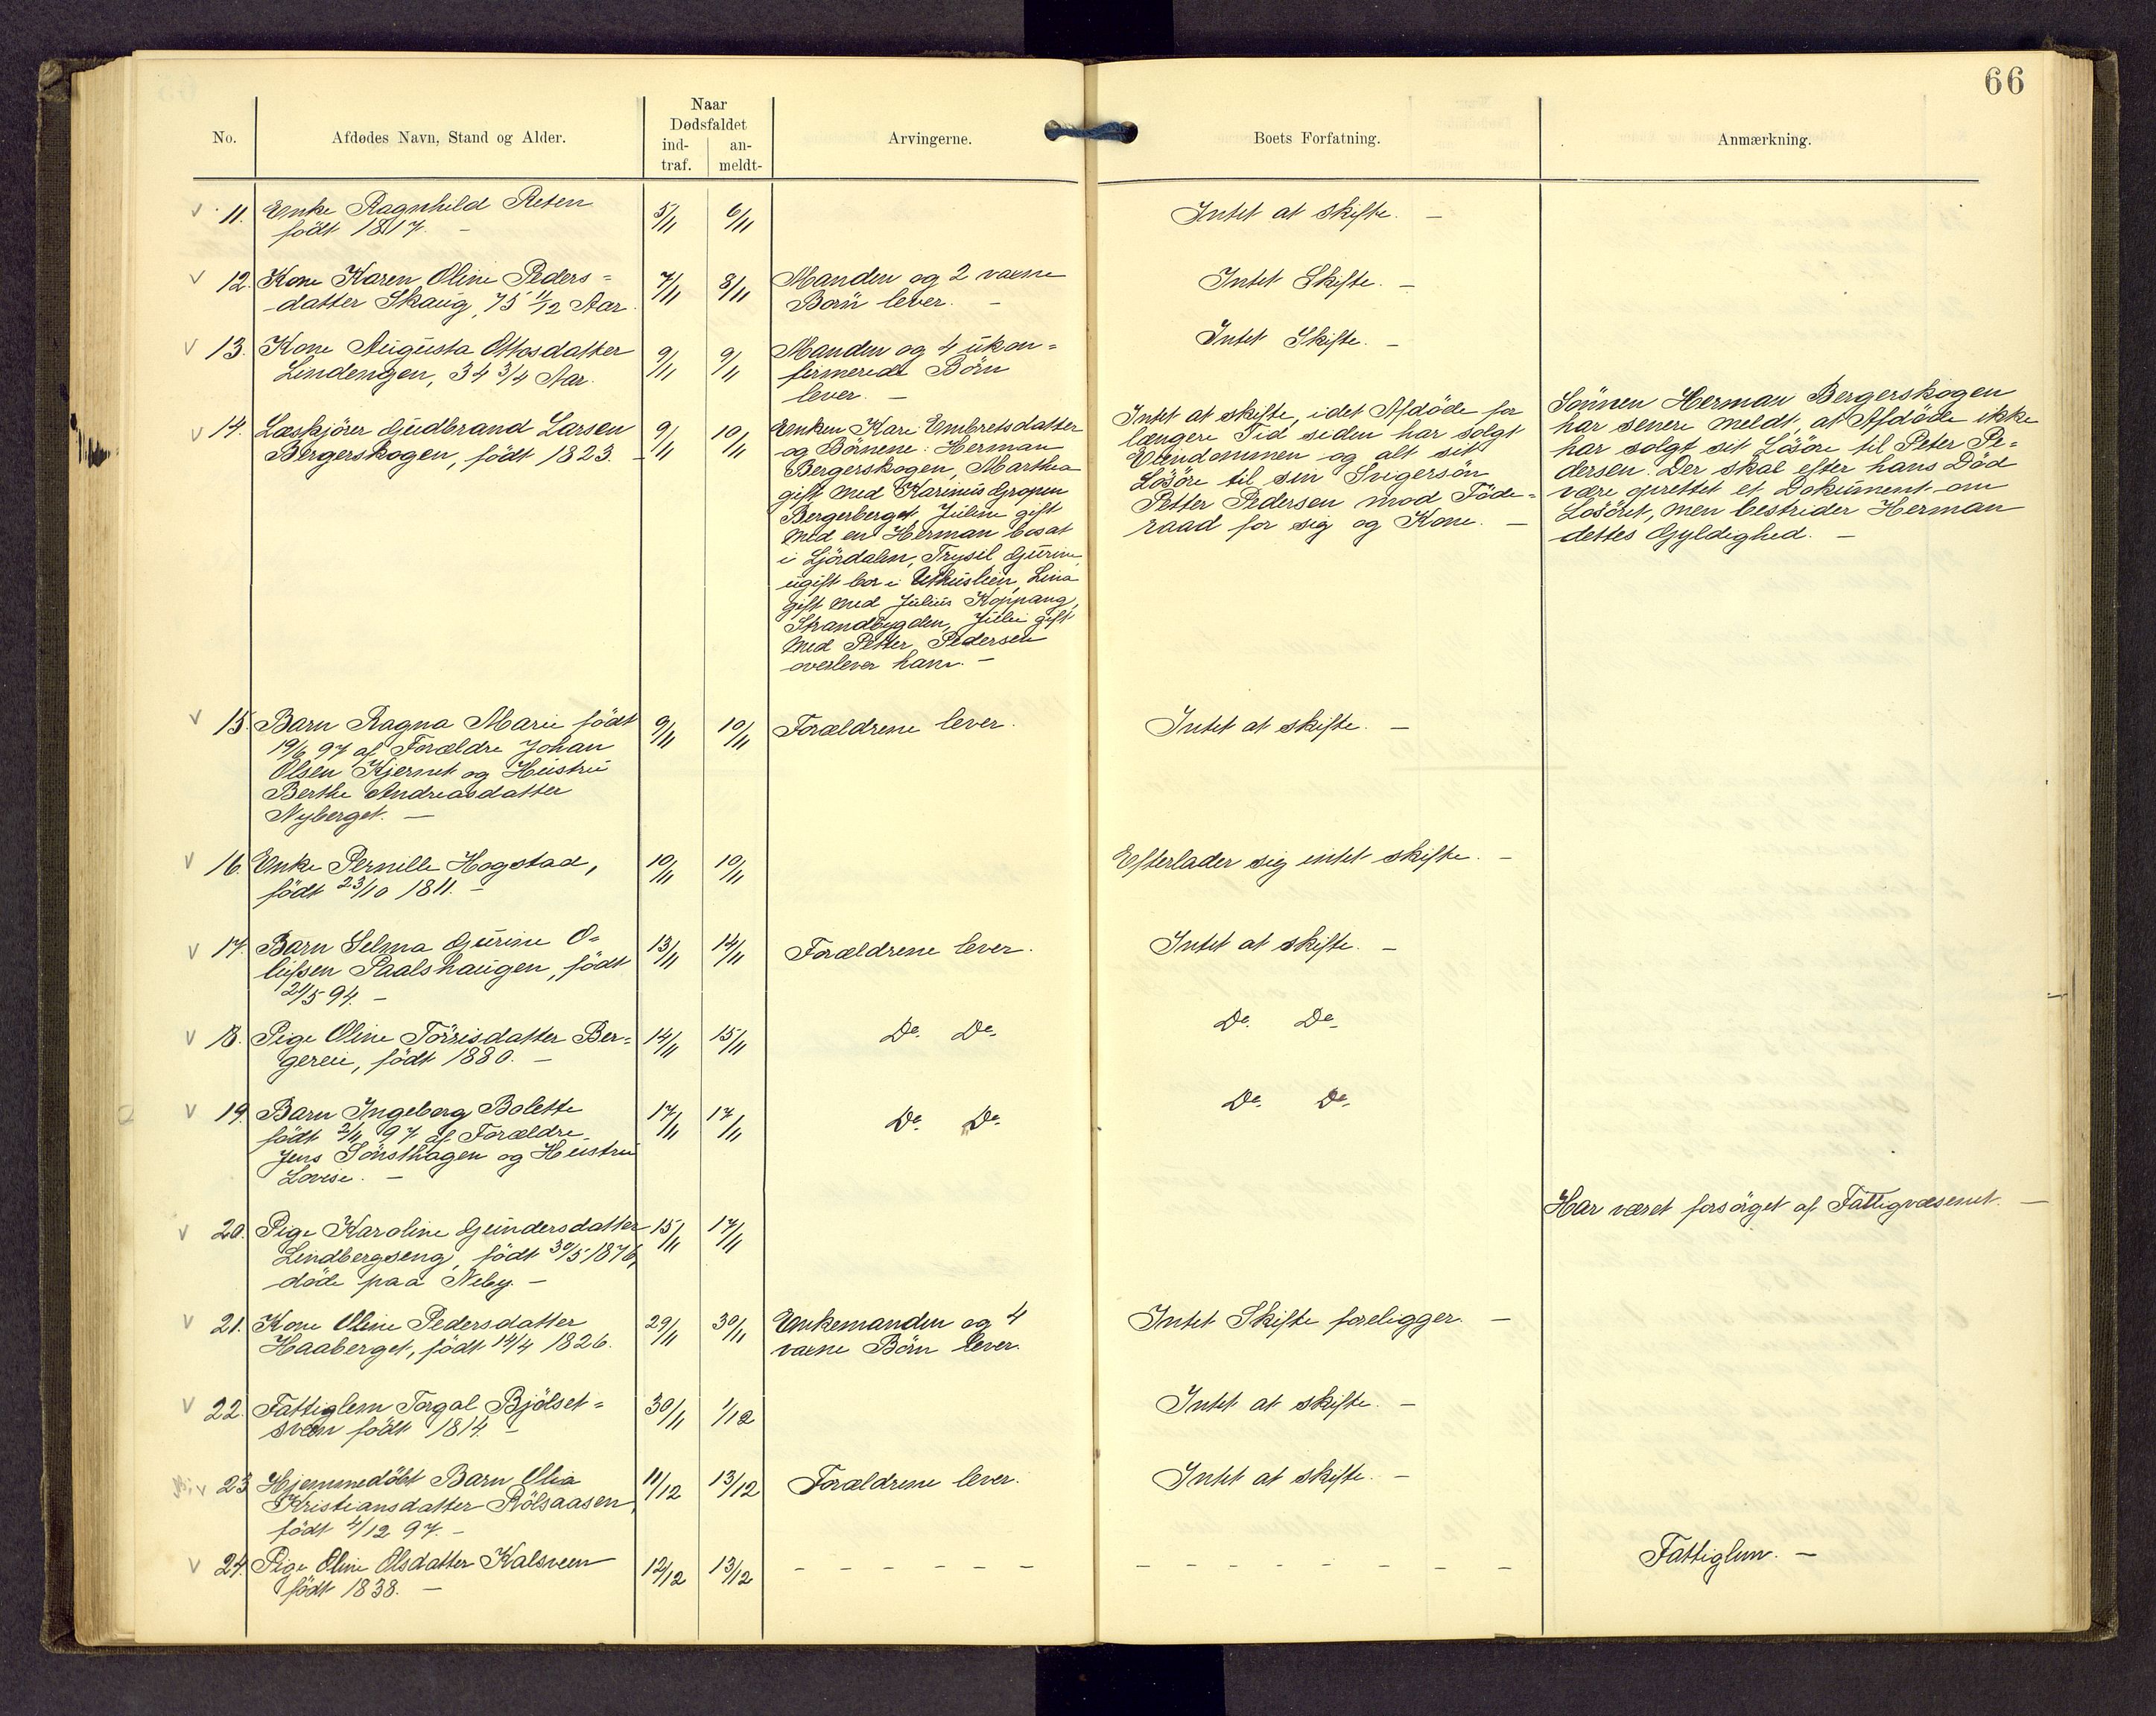 66
No.
Afdødes Navn, Stand og Alder.
Naar
Dødsfaldet
ind-
traf.
an-
meldt-
Arvingerne.
Boets Forfatning.
Anmærkning.
11. Enke Ragnhild Reten 5/11 6/11 Intet at skifte. –
født 1817. –
12. Kone Karen Oline Peders= 7/11 8/11 Manden og 2 vaxne Intet Skifte. –
datter Skaug, 75 11/12 Aar. Börn lever. –
13. Kone Augusta Ottosdatter 9/11 9/11 Manden og 4 ukon= Intet Skifte. –
Lindengen, 34 3/4 Aar. firmerede Börn
lever. –
14. Læskjörer Gudbrand Larsen 9/11 10/11
Bergerskogen, födt 1823. –
Enken Kari Embretsdatter
og Börnene: Herman
Bergerskogen, Marthea
gift med Karinius Gropen
Bergerberget, Juline gift
med en Herman bosat
i Ljördalen, Trysil, Gurine
ugift bor i Uthuslien, Lina
gift med Julius Koppang,
Strandbygden, Julie gift
med Petter Pedersen
overlever ham. –
Intet at skifte, idet Afdöde for
længere Tid siden har solgt
Eiendommen og alt sit
Lösöre til sin Svigersön
Petter Pedersen mod Föde=
raad for sig og Kone. –
Sönnen Herman Bergerskogen
har senere meldt, at Afdöde ikke
har solgt sit Lösöre til Peter Pe=
dersen. Der skal efter hans Död
være oprettet et Dokument om
Lösöret, men bestrider Herman
dettes Gyldighed. –
15. Barn Ragna Marie födt 9/11 10/11 Forældrene lever. Intet at skifte. –
19/6 97 af Forældre Johan
Olsen Kjernet og Hustru
Berthe Andreasdatter
Nyberget. –
16. Enke Pernille Hogstad, 10/11 10/11 Efterlader sig intet skifte. –
födt 23/10 1811. –
17. Barn Selma Gurine O= 13/11 14/11 Forældrene lever. Intet at skifte. –
lussen Paalshaugen, födt
21/5 94. –
18. Pige Oline Törrisdatter Ber= 14/11 15/11 Do. Do. Do. Do.
gereie, födt 1880. –
19. Barn Ingeborg Bolette 17/11 17/11 Do. Do. Do. Do.
födt 2/11 97 af Forældre
Jens Sönsthagen og Hustru
Lovise. –
20. Pige Karoline Gundersdatter 15/11 17/11 Har været forsörget af Fattigvæsenet. –
Lindbergseng, födt 30/5 1876,
döde paa Neby. –
21. Kone Oline Pedersdatter 29/11 30/11 Enkemanden og 4 Intet Skifte foreligger. –
Haaberget, födt 14/4 1826. vaxne Börn lever.
22. Fattiglem Torgal Bjölset= 30/11 1/12 Intet at skifte. –
sveen födt 1814. –
23. Hjemmedöbt Barn Olia 11/12 13/12 Forældrene lever. Intet at skifte. –
Kristiansdatter Rölsaasen,
födt 4/12 97. –
24. Pige Oline Olsdatter Kalsveen 12/12 13/12 – – – – – – – – – – – – – – – Fattiglem. –
födt 1838. –